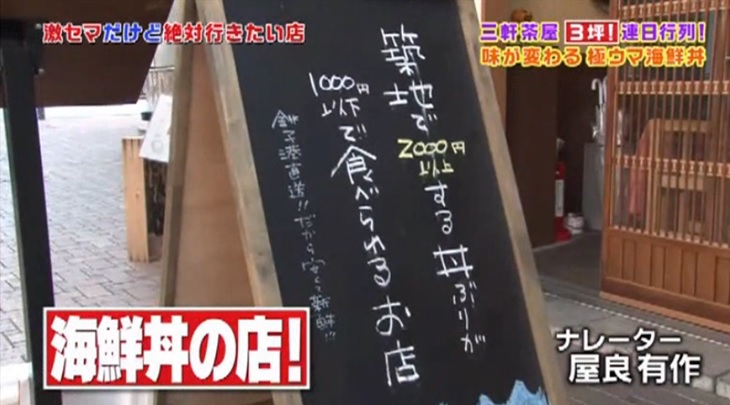 激セマだけど絶対行きたい店
三軒茶屋 3坪!連日行列!
味が変わる 極ウマ海鮮丼
築地で
2000円
以上
する丼ぶりが
1000円
以下
で食べられるお店
銚子港直送!!だから安く新鮮!!
海鮮丼の店!
ナレーター
屋良有作